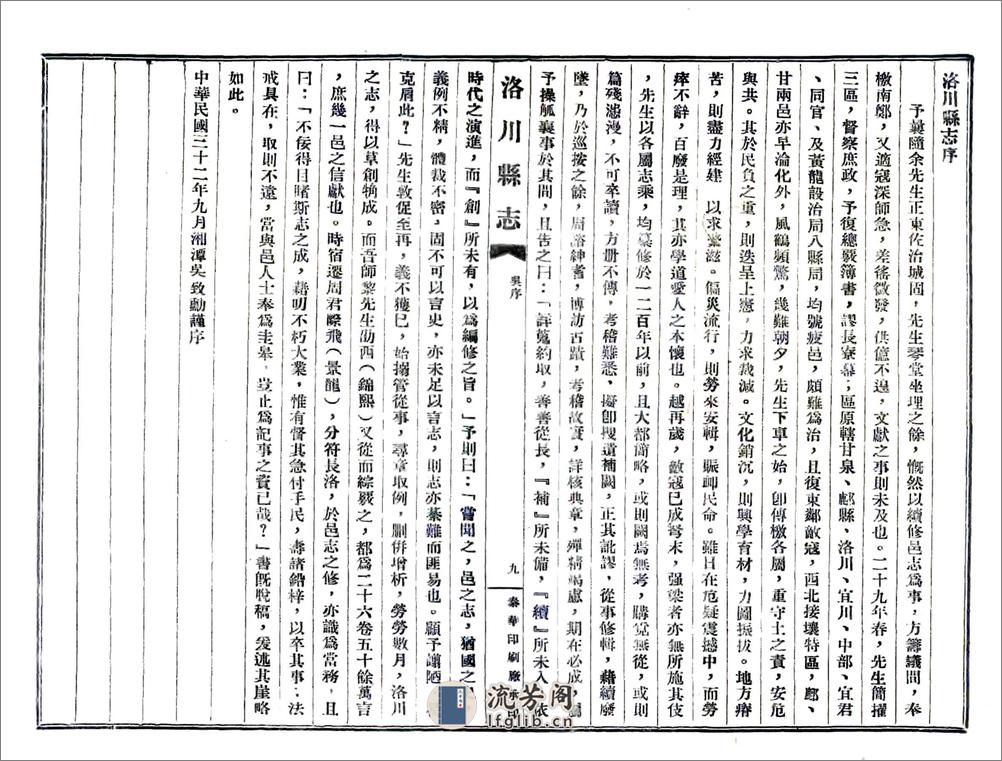 洛川縣志序
予曩隨余先生正東佐治城固，先生琴堂坐理之餘，慨然以續修邑志爲事，方籌議間，奉
檄南鄭，又適寇深師急，差徭徵發，供億不遑，文獻之事則未及也。二十九年春，先生簡擢
三區，督察庶政，予復總綴簿書，謬長寮幕；區原轄甘泉、鄜縣、洛川、宜川、中部、宜君
、同官、及黃龍設治局八縣局，均號疲邑，頗難爲治，且復東鄰敵寇，西北接壤特區，鄜、
甘兩邑亦早淪化外，風鶴頻驚，幾難朝夕，先生下車之始，卽傳檄各屬，重守土之責，安危
與共。其於民負之重，則迭呈上憲，力求裁減。文化銷沉，則興學育材，力圖振拔。地方瘠
苦，則盡力經建　以求繁滋。偏災流行，則勞來安輯，賑卹民命。雖日在危疑震撼中，而勞
瘁不辭，百廢是理，其亦學道愛人之本懷也。越再歲，敵寇已成弩末，强梁者亦無所施其伎
，先生以各屬志乘，均纂修於一二百年以前，且大都簡略，或則闕焉無考，購覓無從，或則
篇殘漶漫，不可卒讀，方册不傳，考稽難悉，擬卽搜遺補闕，正其訛謬，從事修輯，藉續廢
墜，乃於巡按之餘，周諮紳耆，博訪古蹟，考稽故實，詳核典章，殫精竭慮，期在必成，屬
予操觚襄事於其間，且告之曰：「詳蒐約取，善善從長，『補』所未備，『續』所未入，依
洛川縣志
吳序
九
泰華印刷廠承印
時代之演進，而『創』所未有，以爲編修之旨。」予則曰：「嘗聞之，邑之志，猶國之
義例不精，體裁不密，固不可以言史，亦未足以言志，則志亦綦難而匪易也。顧予譾陋
克肩此？」先生敦促至再，義不獲已，始搦管從事，尋章取例，刪併增析，勞勞數月，洛川
之志，得以草創犓成。而吾師黎先生劭西（錦熙）又從而綜覈之，都爲二十六卷五十餘萬言
，庶幾一邑之信獻也。時宿遷周君際飛（景龍），分符長洛，於邑志之修，亦識爲當務，且
曰：「不佞得目睹斯志之成，藉明不朽大業，惟有督其急付手民，壽諸鉛梓，以卒其事；法
戒具在，取則不遠，當與邑人士奉爲圭臬，豈止爲記事之資已哉？」書旣脫稿，爰述其崖略
如此。
中華民國三十二年九月湘潭吳致勳謹序
流芳阁
lfglib.cn